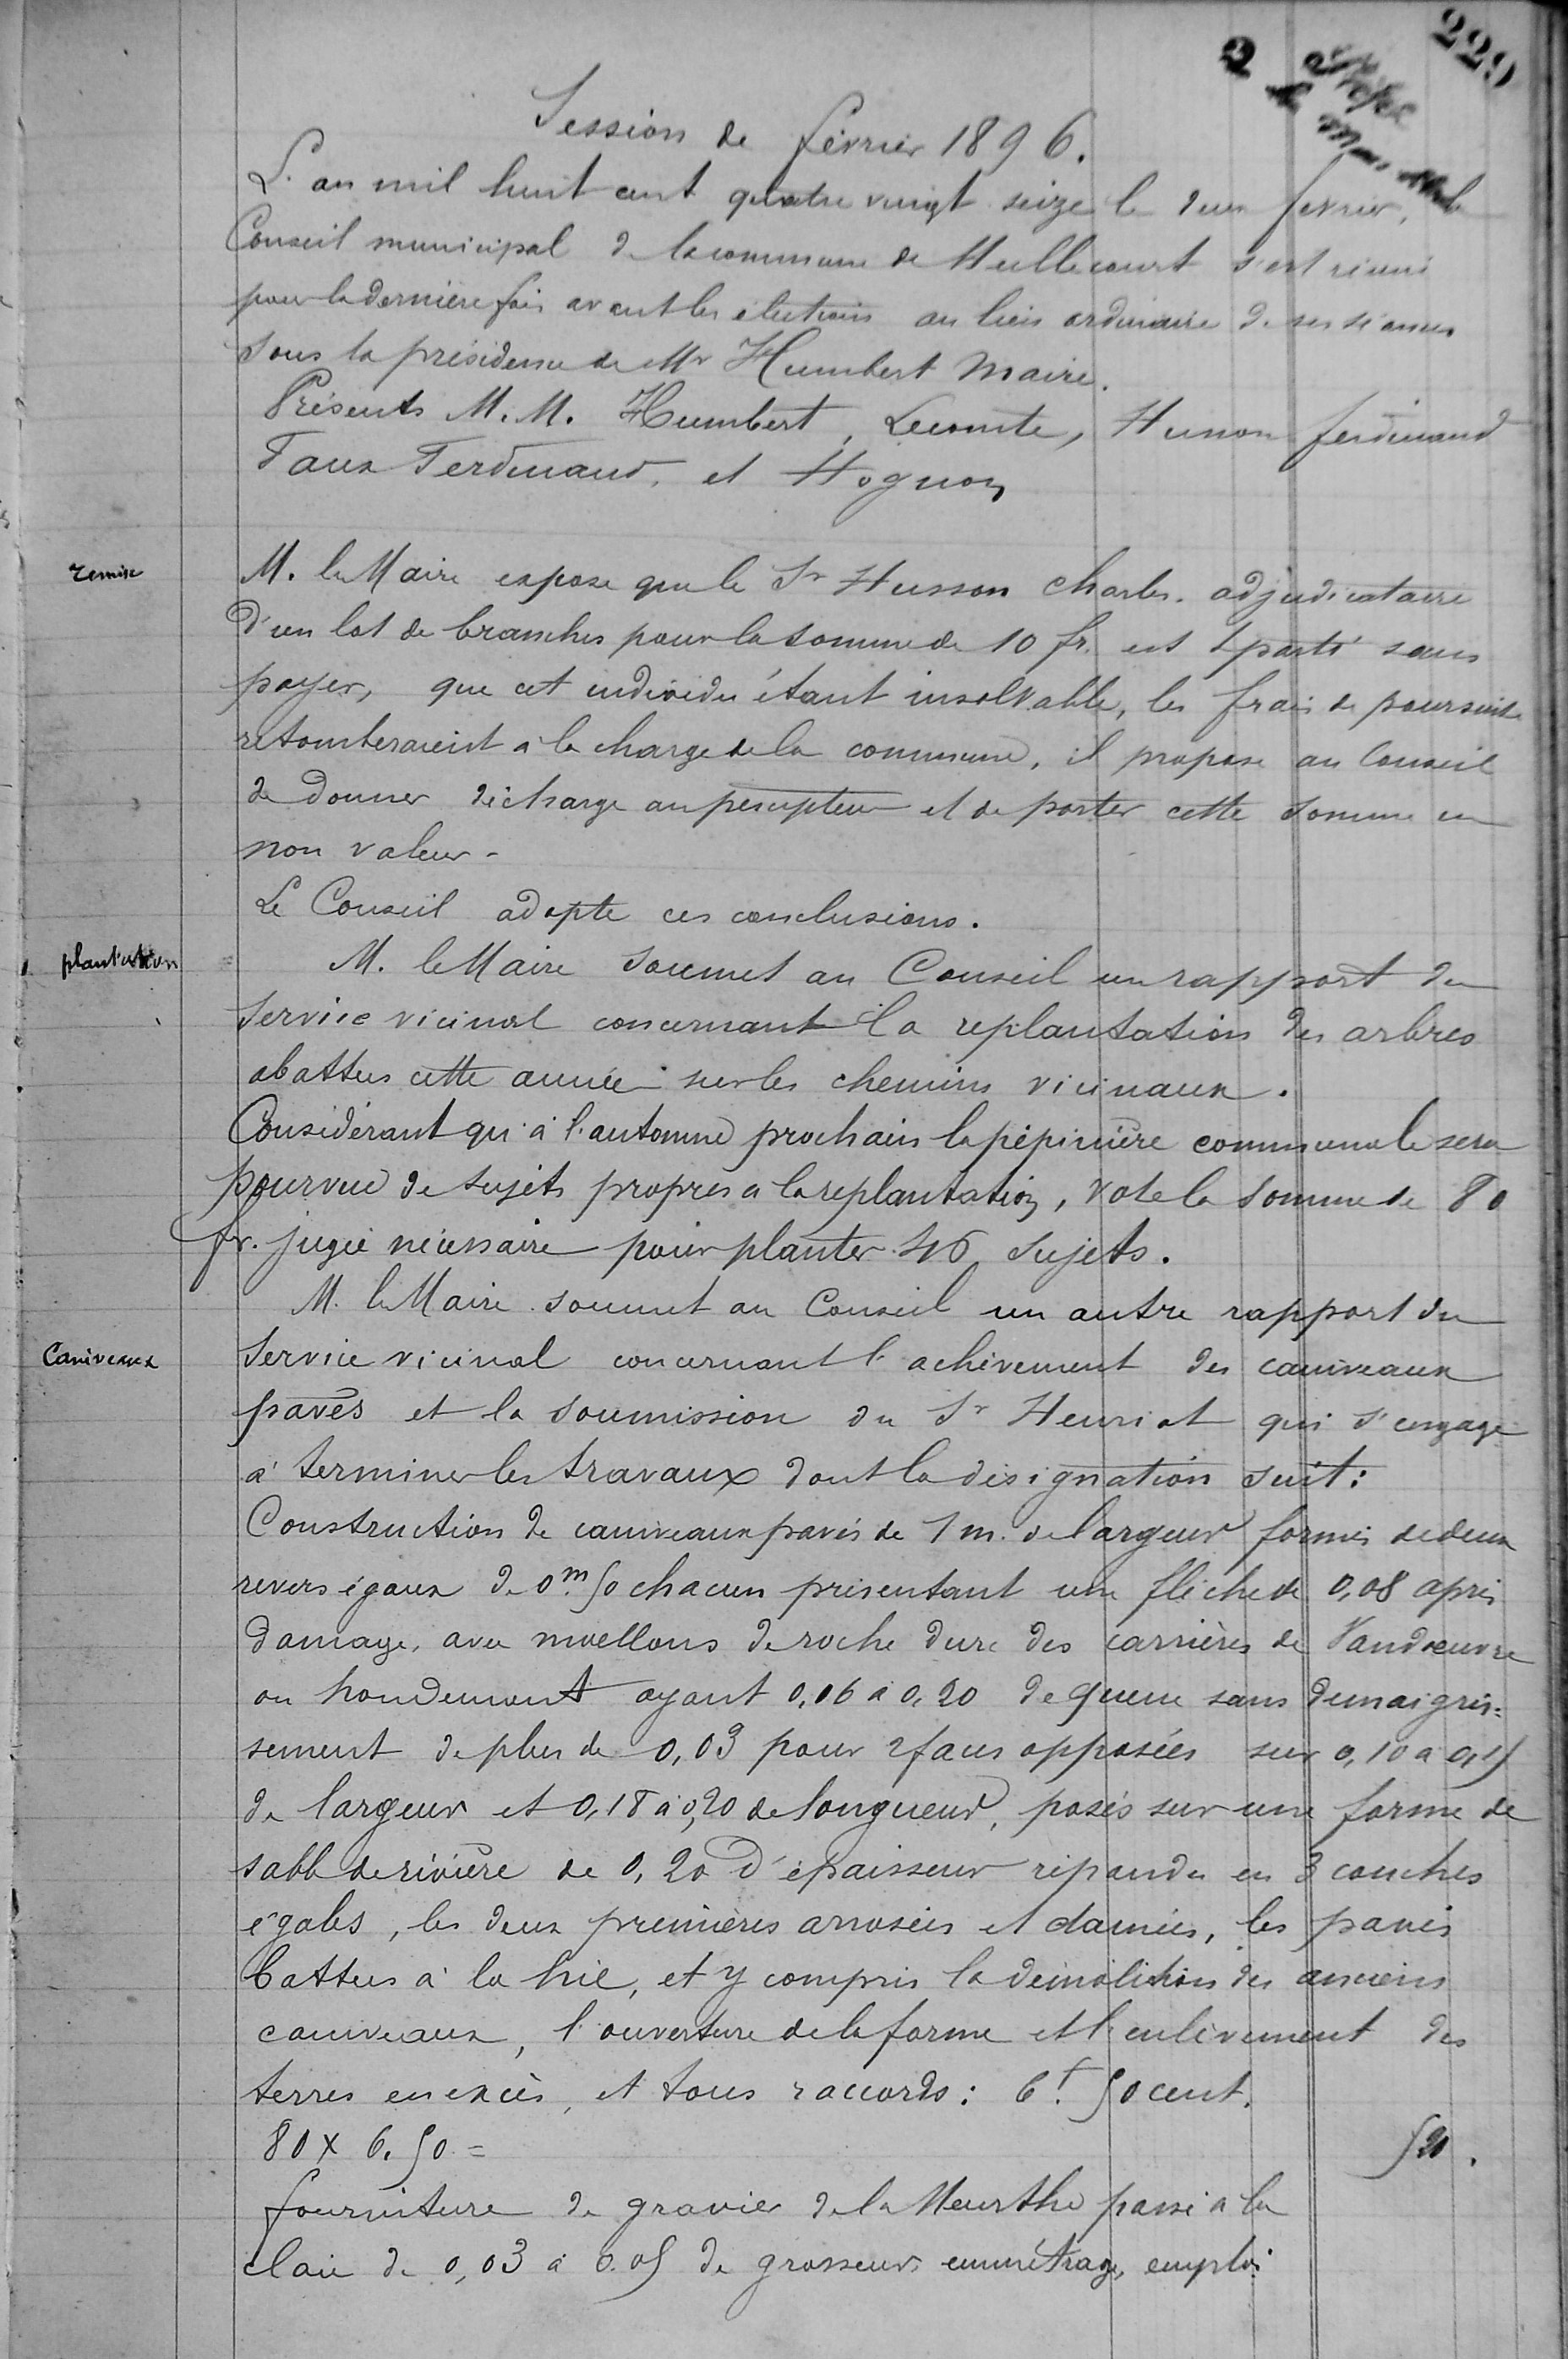 229
2
Session de février 1896.
L'an mil huit cent quatre vingt seize le deux février, le
Conseil municipal de la commune de Heillecourt s'est réuni
pour la dernière fois avant les élections au lieu ordinaire de ses séances
sous la présidence de Mr Humbert Maire.
Présents M.M. Humbert, Lecomte, Husson ferdinand
Faux Ferdinand, et Hognon
remise
M. le Maire expose que le Sr Husson Charles. adjudicataire
d'un lot de branches pour la somme de 10 fr. est parti sans
payer, que cet individu étant insolvable, les frais de poursuite
retomberaient à la charge de la commune, il propose au Conseil
de donner décharge au percepteur et de porter cette somme en
non valeur -
Le Conseil adopte ces conclusions.
plantation
M. le Maire soumet au Conseil un rapport du
service vicinal concernant la replantation des arbres
abattus cette année sur les chemins vicinaux.
Considérant qu'à l'automne prochain la pépinière communale sera
pourvue de sujets propres a la replantation, vote la somme de 80
fr. jugée nécessaire pour planter 46 sujets.
M. le Maire soumet au Conseil un autre rapport du
Caniveaux
Service vicinal concernant l'achèvement des caniveaux
pavés et la soumission du Sr Henriot qui s'engage
à terminer les travaux dont la désignation suit:
Construction de caniveaux pavés de 1 m. de largeur formés de deux
revers égaux de 0m.50 chacun présentant une flèche de 0,08 après
damage, avec moellons de roche dure des carrières de Vandoeuvre
ou houdemont ayant 0,16 à 0,20 de queue sans démaigris=
sement de plus de 0,03 pour 2 faces opposées sur 0,10 à 0,15
de largeur et 0,18 à 0,20 de longueur, posés sur une forme de
sable de rivière de 0,20 d'épaisseur répandu en 3 couches
égales, les deux premières arrosées et damées, les pavés
battus à la hie, et y compris la démolition des anciens
caniveaux, l'ouverture de la forme et l'enlèvement des
terres en excès, et tous raccords: 6f. 50 cent.
80 x 6.50 = 520.
fourniture de gravier de la Meurthe passé à la
claie de 0,03 à 0.05 de grosseur, emmétrage, emploi